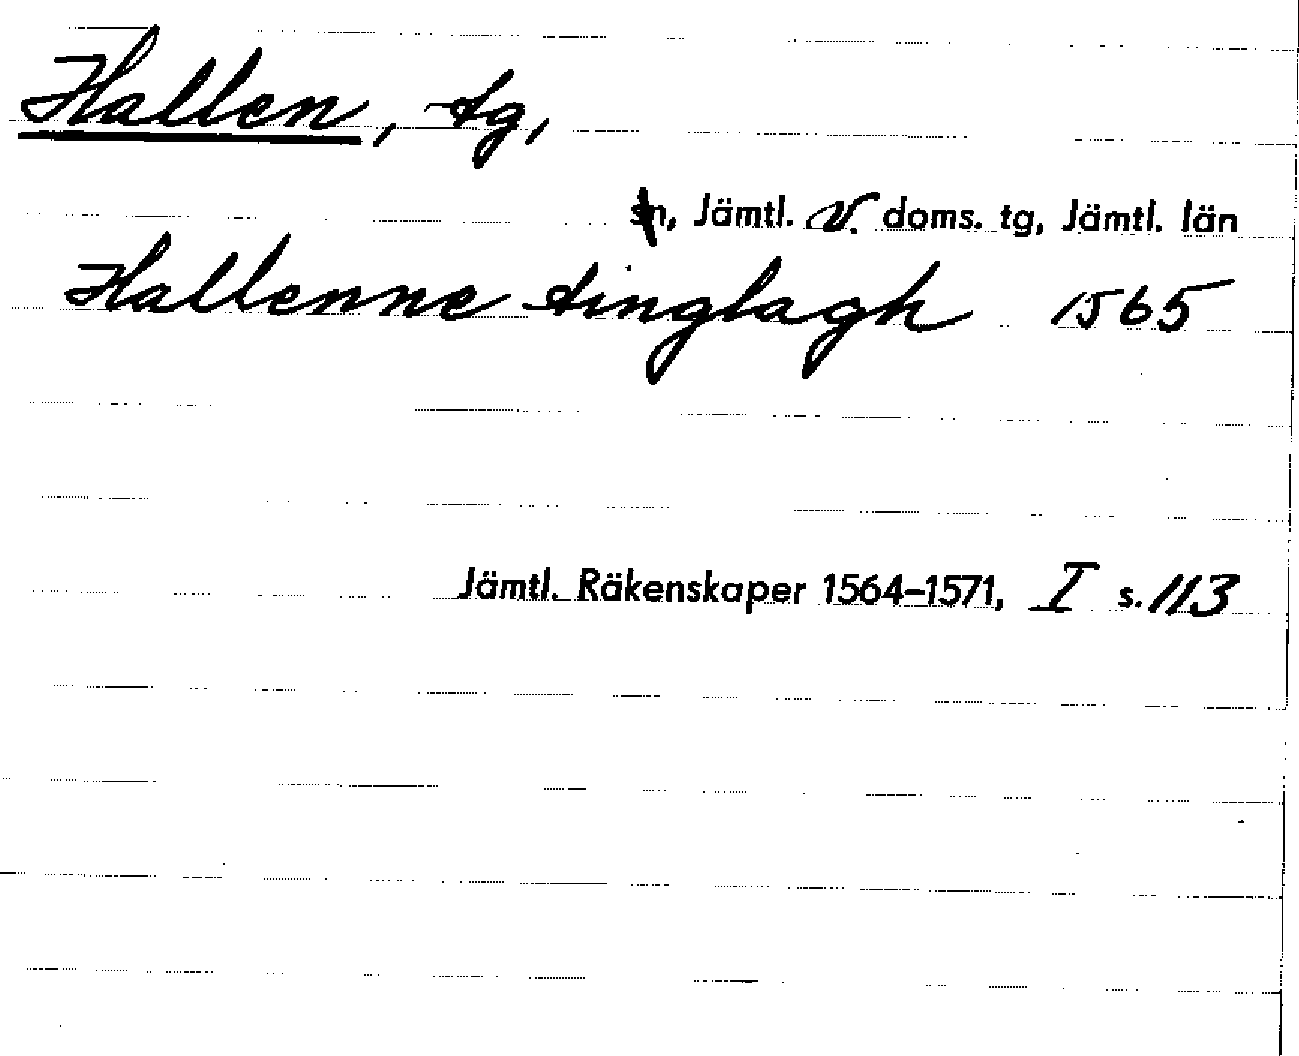 Hallen, tg,
sn, Jämtl. V. doms. tg, Jämtl. län
Hallenne tinglagh 1565
Jämtl. Räkenskaper 1564–1571, I s. 113